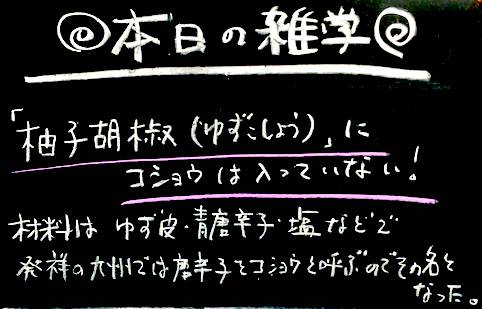 本日の雑学
「柚子胡椒(ゆずこしょう)」に
コショウは入っていない!
材料は ゆず皮・青唐辛子・塩などで
発祥の九州では唐辛子をコショウと呼ぶのでその名と
なった。